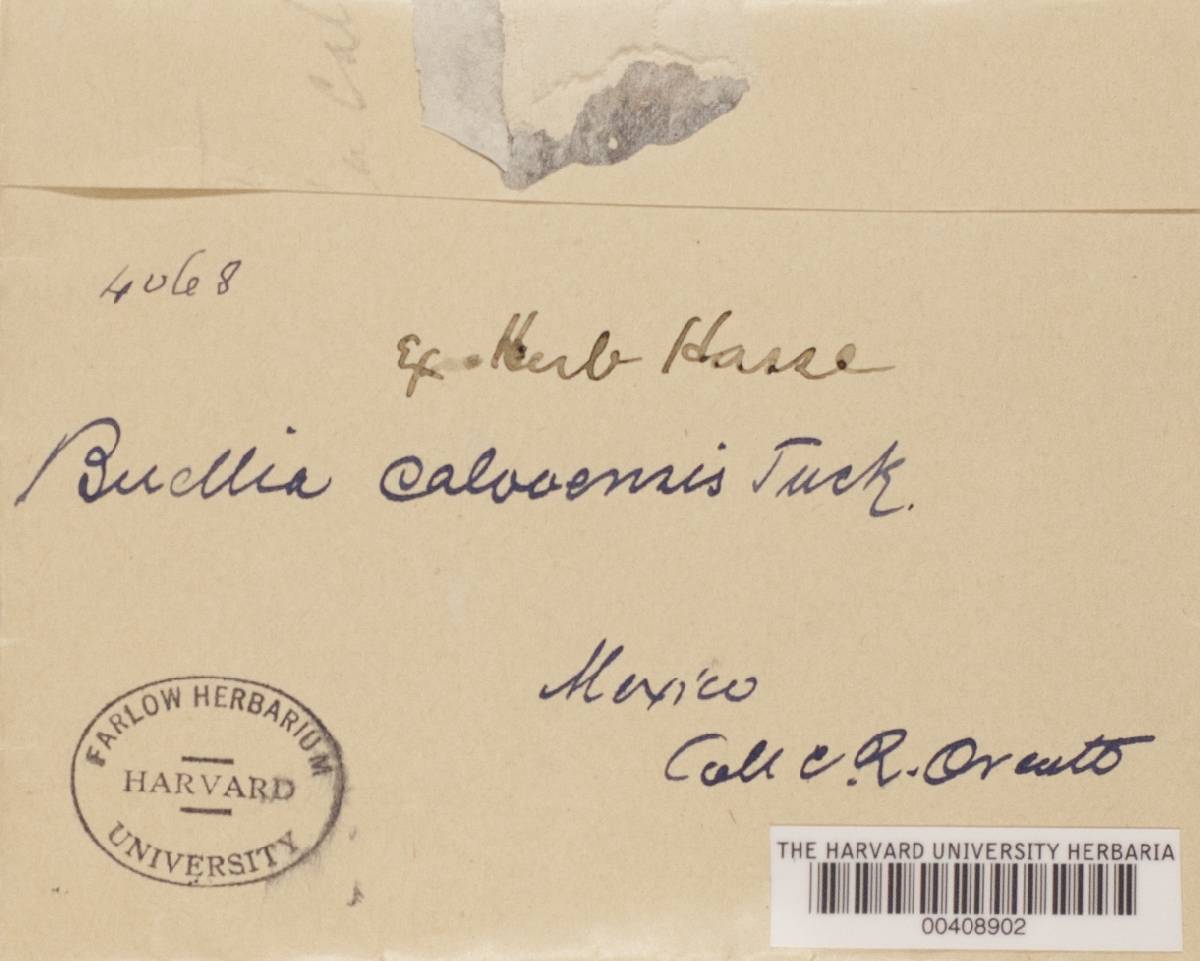 4068
Ex Herb Hasse
Buellia calvoensis Tuck.
Mexico
Coll C. R. Orcutt
FARLOW HERBARIUM
HARVARD
UNIVERSITY
THE HARVARD UNIVERSITY HERBARIA
00408902